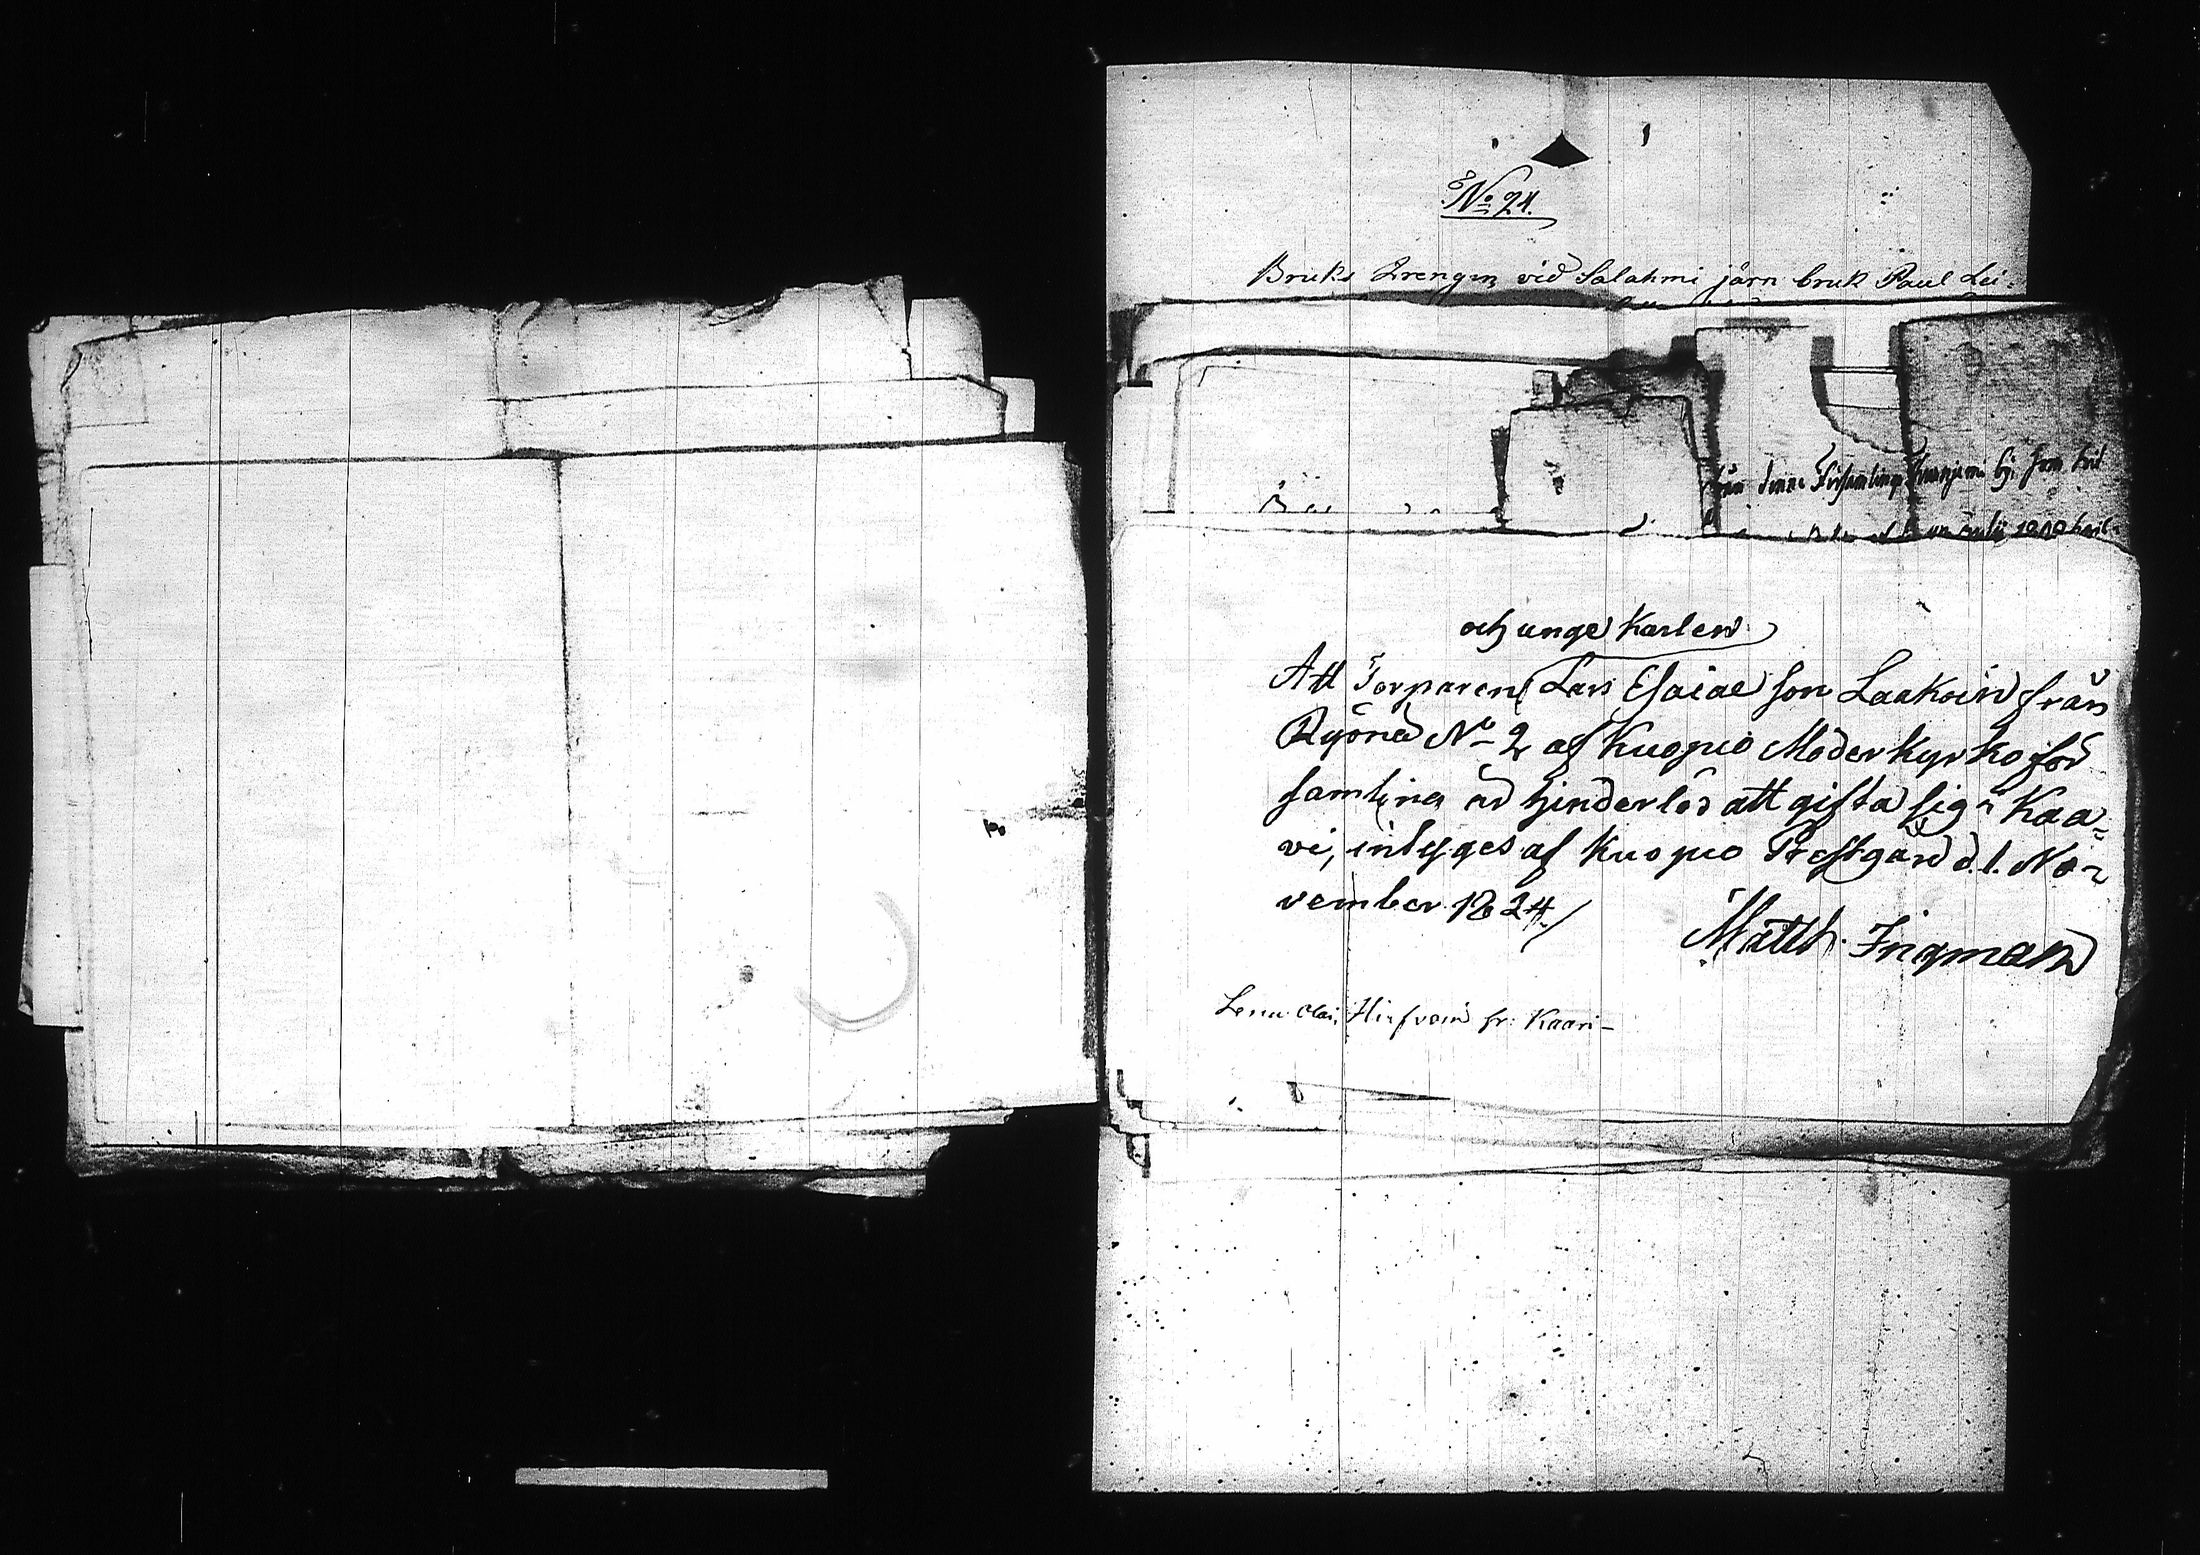 No 24.
Bruks Drengen vid Salahmi järn bruk Paul Lei-
denna Församling
och unge Karlen
Att Torparen Lars Esaiae son Laakoin från
Ryönä No 2 af Kuopio Moderkyrko för
samling är hinderlös att gifta sig i Kaa-
vi, intyges af Kuopio Prestgård d. 1. No-
vember 1824
Matth. Ingman
Lena Olai Hirfvoin fr. Kaavi-